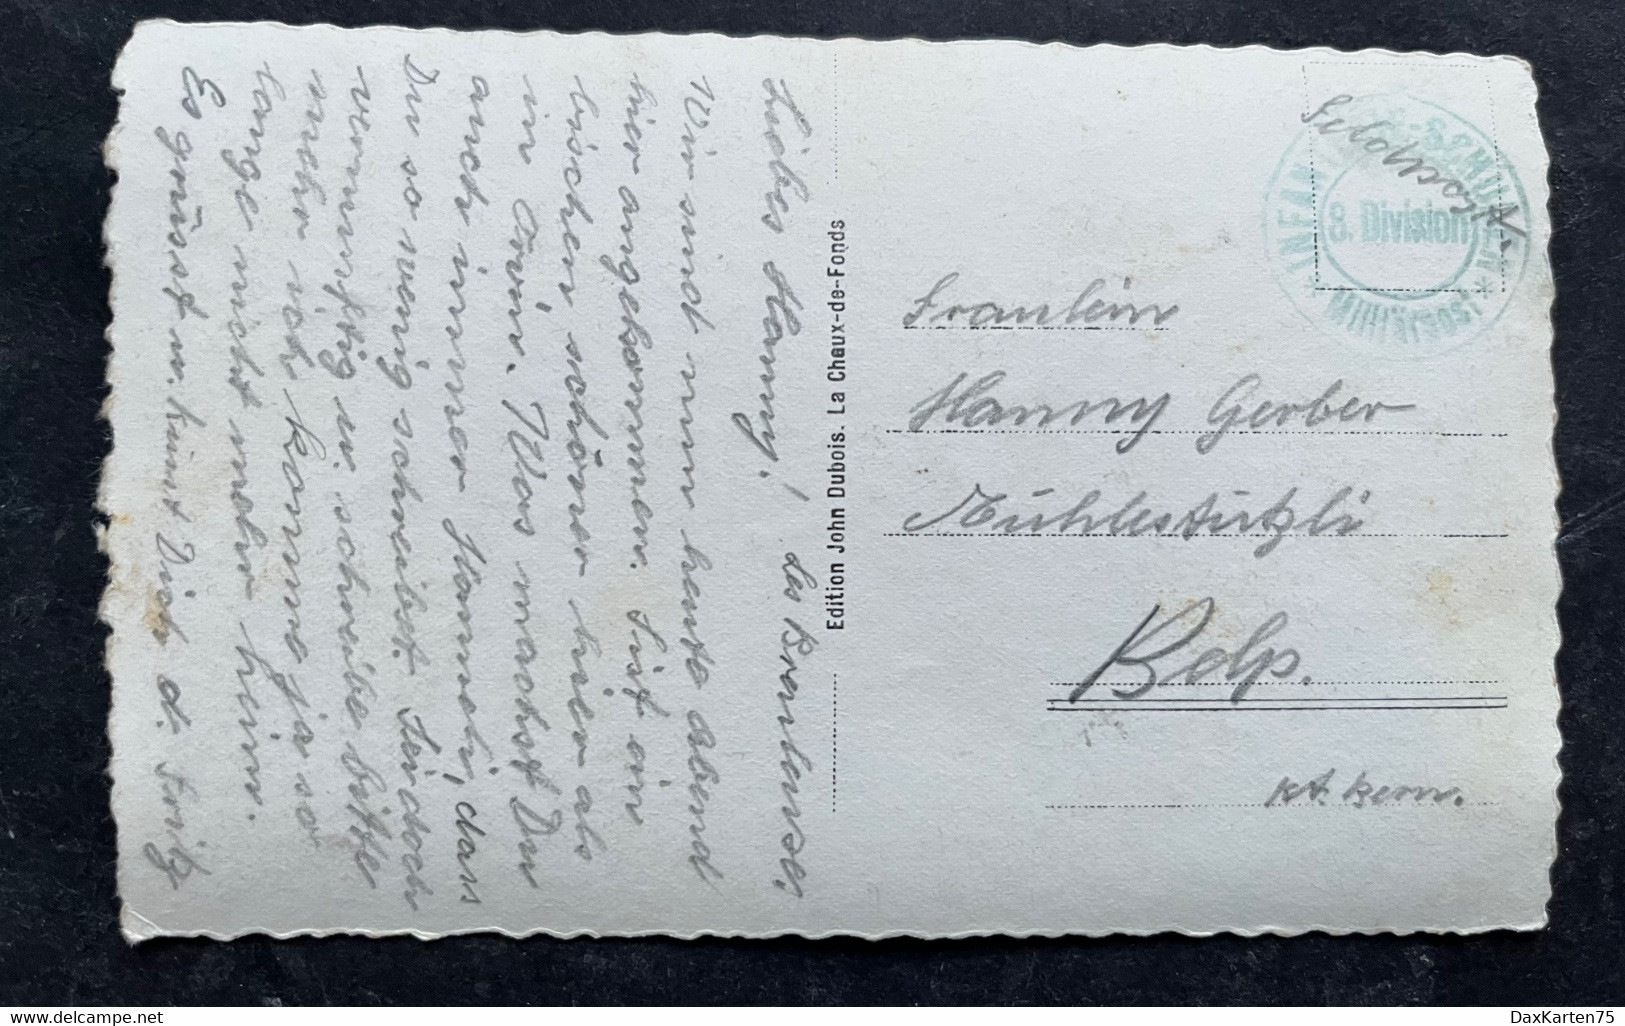 Liebes Hanny! Les Breuleuse,
Wir sind nun heute abend
hier angekommen. Hist ein
bischen schöner hier als
in Orvin. Was machst Du
auch immer Hanneli, dass
Du so wenig schreibst. Sei doch
vernünftig u. schreibe bitte
mehr ich komme ja so
lange nicht mehr heim.
Es grüsst u. küsst Dich d. Fritz
Edition John Dubois. La Chaux-de-Fonds
Feldpost
INFANTERIE-SCHULEN
8. Division
* MILITÄRPOST *
Fraulein
Hanny Gerber
Mühlestutzli
Belp.
Kt. Bern.
delcampe.net
DaxKarten75